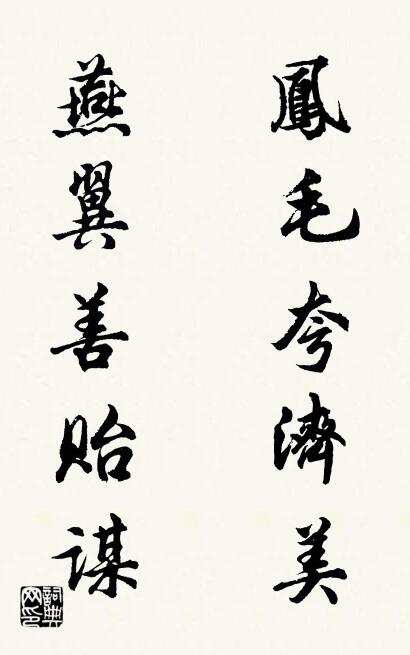 鳳毛夸濟美
燕翼善貽謀
詞典网印